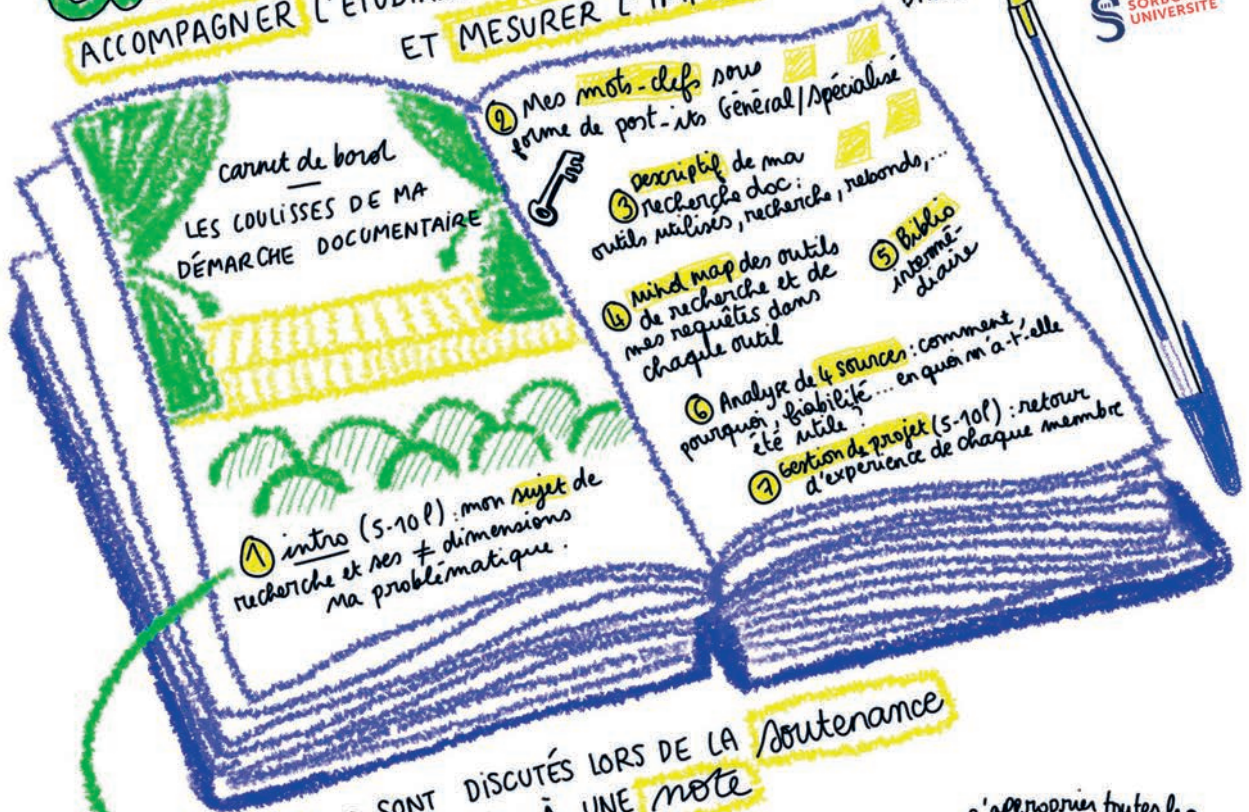 ACCOMPAGNER L'ÉTUDIA
ET MESURER L'IM
SORBO
UNIVERSITÉ
carnet de bord
LES COULISSES DE MA
DÉMARCHE DOCUMENTAIRE
① intro (5-10l) : mon sujet de
recherche et ses ≠ dimensions
Ma problématique.
② Mes mots-clefs sous
forme de post-its Général/Spécialisé
③ Descriptif de ma
recherche doc :
outils utilisés, recherche, rebonds,...
④ Mind map des outils
de recherche et de
mes requêtes dans
chaque outil
⑤ Biblio
intermé-
diaire
⑥ Analyse de 4 sources : comment,
pourquoi, fiabilité... en quoi m'a-t'elle
été utile ?
⑦ Gestion de projet (5-10l) : retour
d'expérience de chaque membre
SONT DISCUTÉS LORS DE LA soutenance
À UNE note
s'approprier toutes les